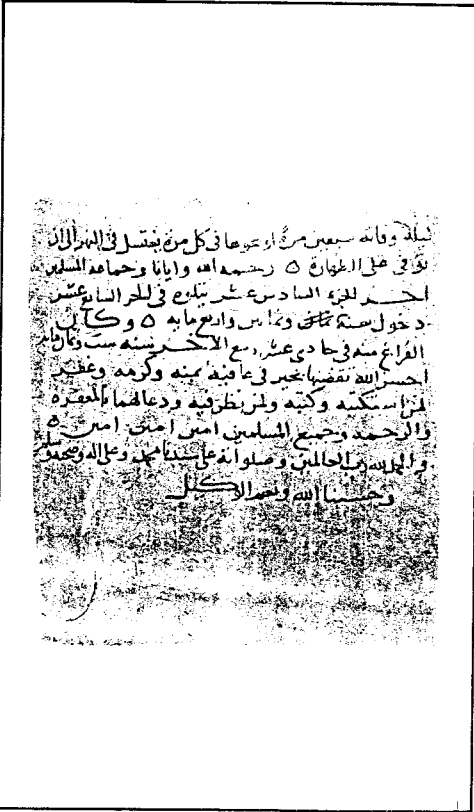 ليلة وفاته سبعين مرة او نحوها فى كل مرة يغتسل فى النهر الى ان
توفى على الطهارة ٥ رحمه الله وايانا وجماعة المسلمين
اخر الجزء السادس عشر يتلوه فى الجزء السابع عشر
دخول سنة وثمانين واربع مايه ٥ وكان
الفراغ منه فى حادى عشر ربيع الاخر سنه ست
احسن الله تقضيها بخير فى عافية بمنه وكرمه وغفر
لمن استكتبه وكتبه ولمن نظر فيه ودعا لهما بالمغفرة
والرحمه وجميع المسلمين امين امين امين ٥
والحمد لله رب العالمين وصلواته على سيدنا محمد وعلى اله وصحبه وسلم
وحسبنا الله ونعم الوكيل